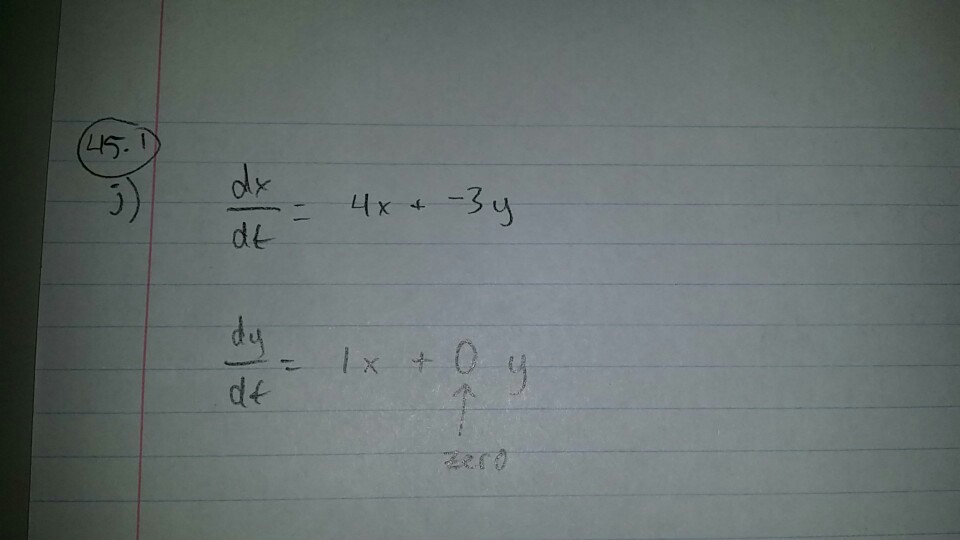 45.1
j)
dx/dt = 4x + -3y
dy/dt = 1x + 0 y
↑
zero